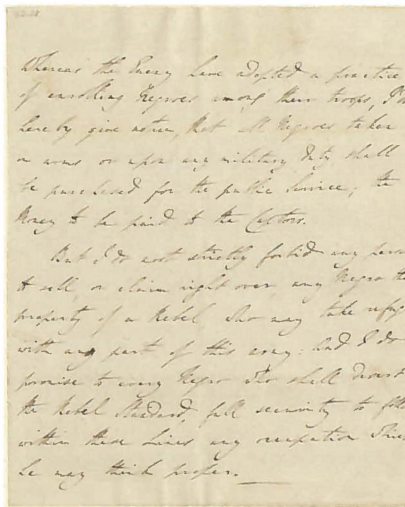 Whereas the Enemy have adopted a practice
of enrolling Negroes among their troops, I do
hereby give notice, that all Negroes taken
in arms or upon any military duty shall
be purchased for the public Service; the
Money to be paid to the Captors.
But I do most strictly forbid any
to sell or claim right over any Negro the
property of a Rebel who may take refuge
with any part of this army: And I do
promise to every Negro who shall desert
the Rebel Standard, full security to follow
within these Lines any occupation
he may think proper.